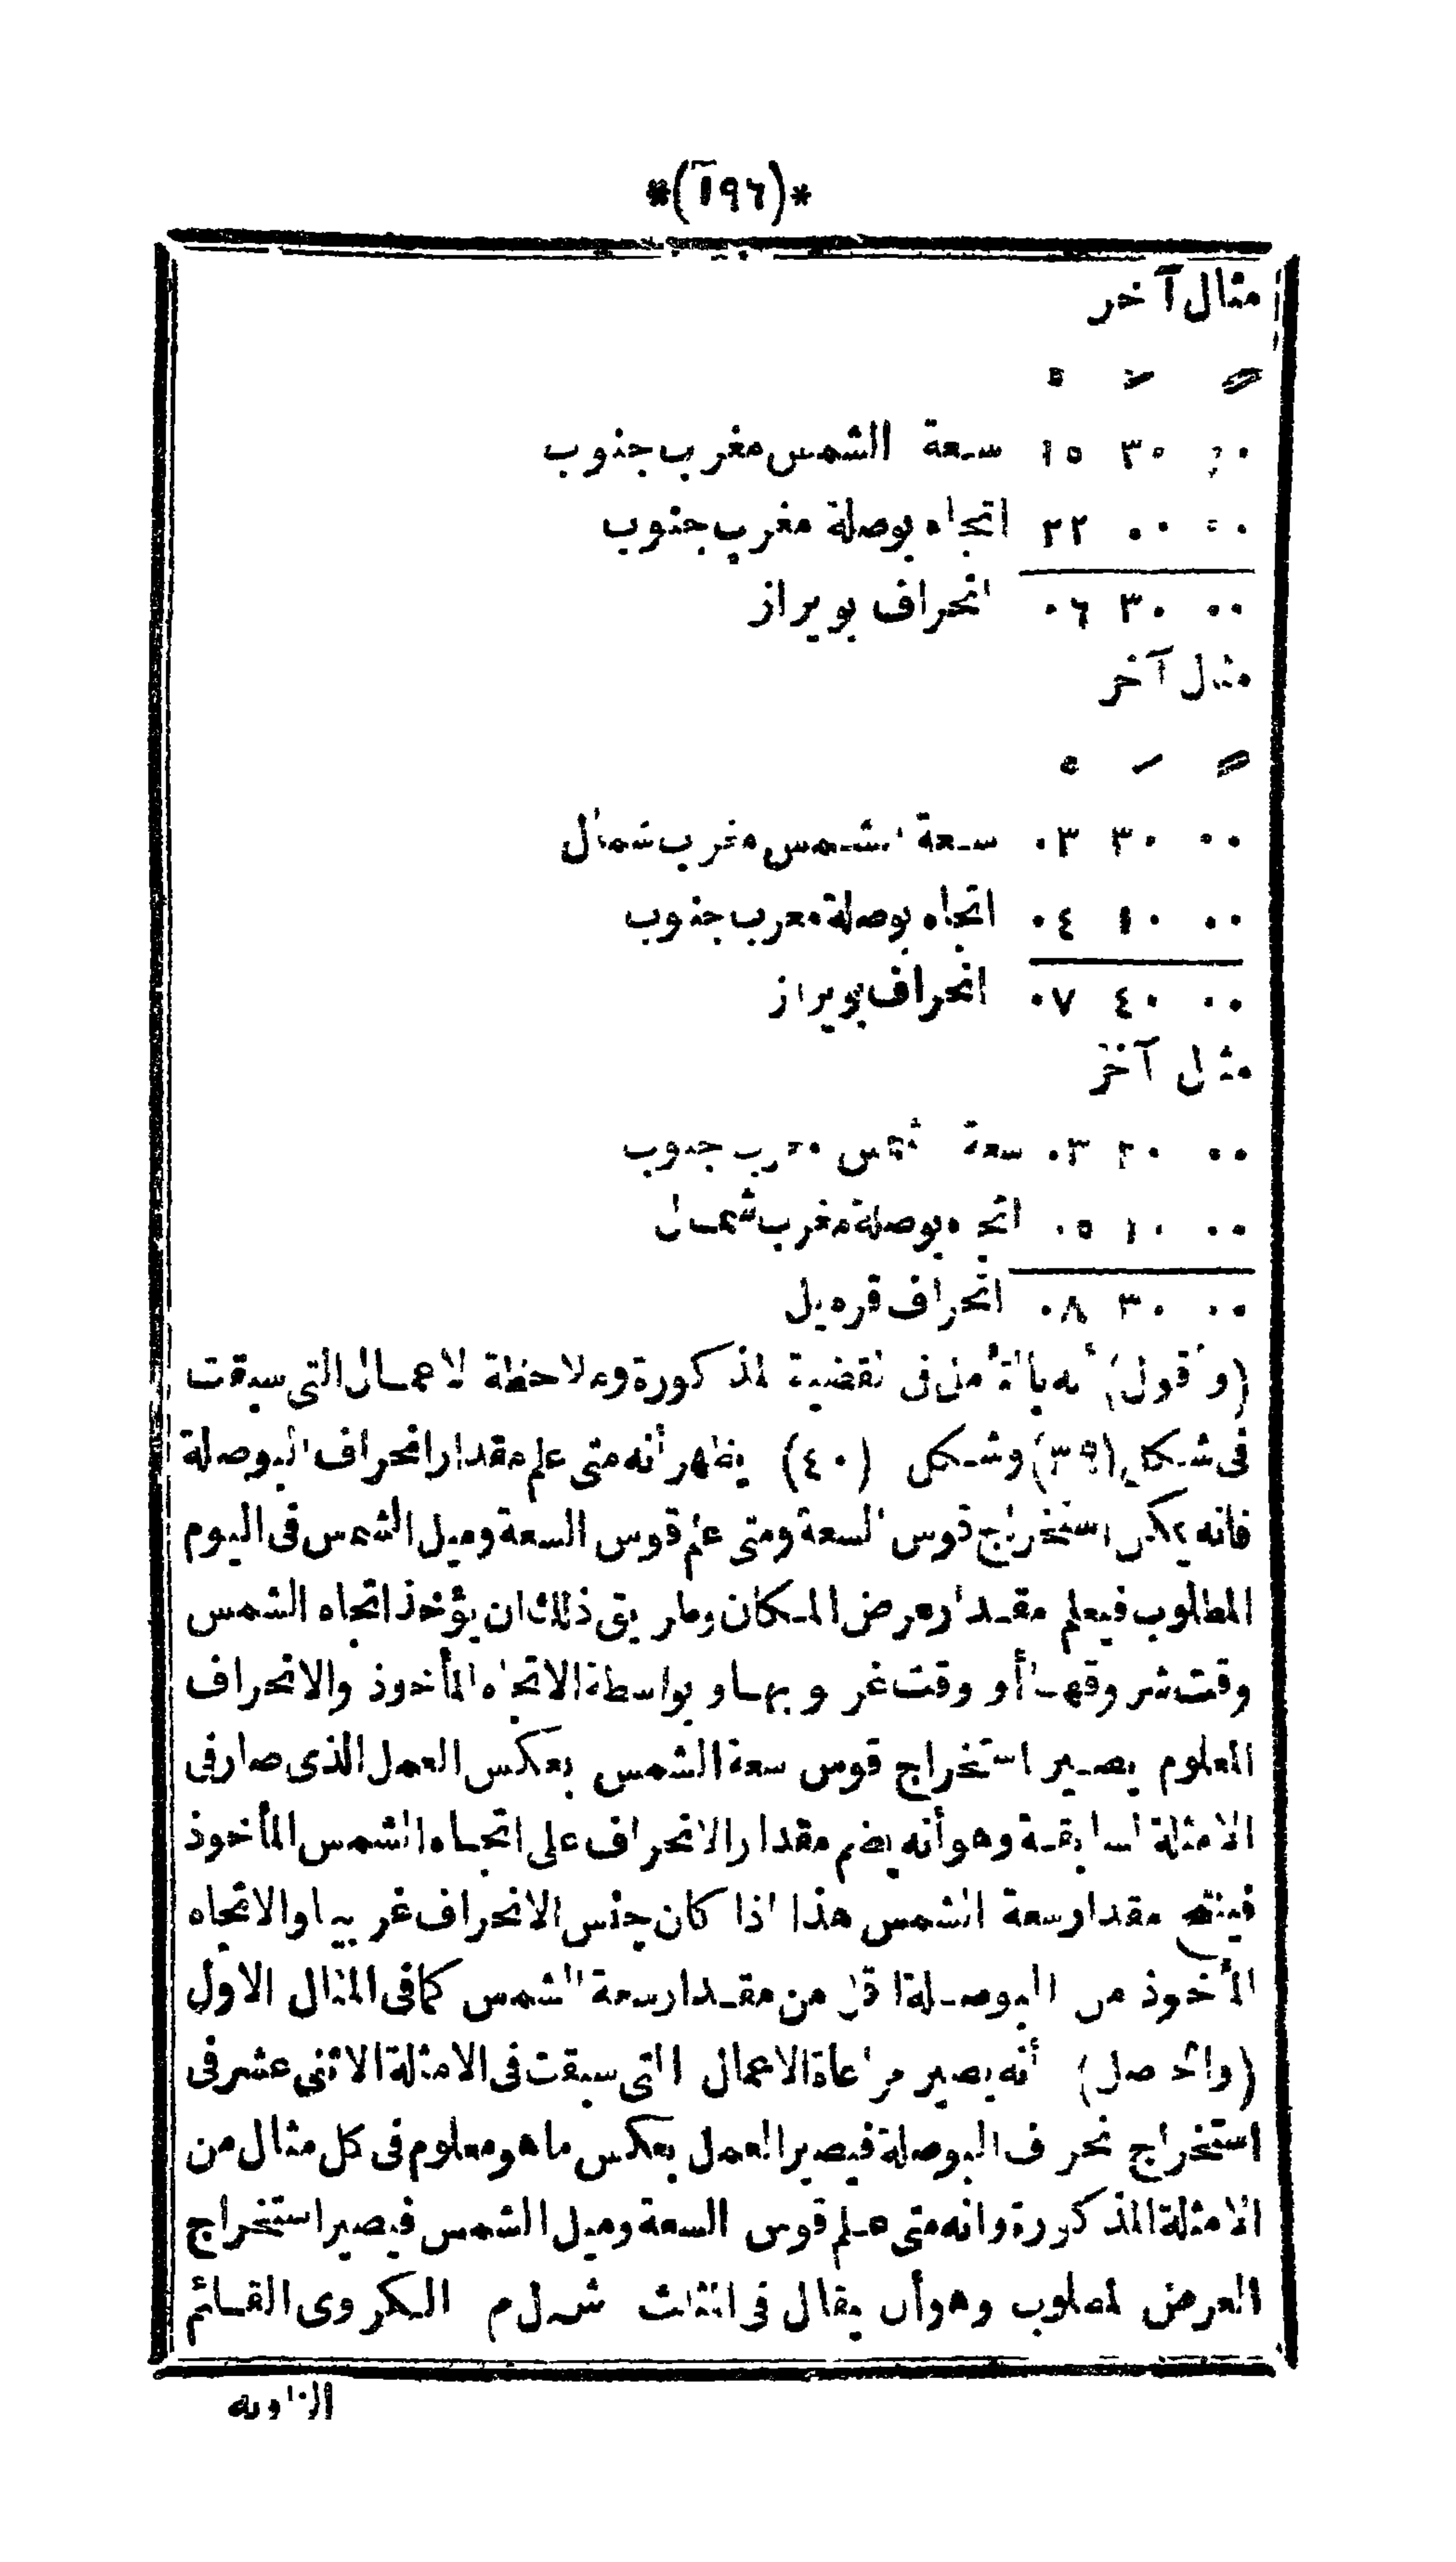 *(١٩٦)*
مثال آخر
° ′ ″
٠٠ ٣٠ ١٥ سعة الشمس مغرب جنوب
٠٠ ٠٠ ٢٢ اتجاه بوصلة مغرب جنوب
٠٠ ٣٠ ٠٦ انحراف بويراز
مثال آخر
° ′ ″
٠٠ ٣٠ ٠٣ سعة الشمس مغرب شمال
٠٠ ١٠ ٠٤ اتجاه بوصلة مغرب جنوب
٠٠ ٤٠ ٠٧ انحراف بويراز
مثال آخر
٠٠ ٢٠ ٠٣ سعة شمس مغرب جنوب
٠٠ ١٠ ٠٥ اتجاه بوصلة مغرب شمال
٠٠ ٣٠ ٠٨ انحراف قره يل
(وأقول) أنه بالتأمل فى القضية المذكورة وملاحظة الاعمال التى سبقت
فى شكل (٣٩) وشكل (٤٠) يظهر أنه متى علم مقدار انحراف البوصلة
فانه يمكن استخراج قوس السعة ومتى علم قوس السعة وميل الشمس فى اليوم
المطلوب فيعلم مقدار عرض المكان وطريق ذلك ان يؤخذ اتجاه الشمس
وقت شروقها أو وقت غروبها وبواسطة الاتجاه المأخوذ والانحراف
المعلوم يصير استخراج قوس سعة الشمس بعكس العمل الذى صار فى
الامثلة السابقة وهو أنه يضم مقدار الانحراف على اتجاه الشمس المأخوذ
فينتج مقدار سعة الشمس هذا اذا كان جنس الانحراف غربيا والاتجاه
المأخوذ من البوصلة اقل من مقدار سعة الشمس كما فى المثال الاول
(والحاصل) أنه يصير مراعاة الاعمال التى سبقت فى الامثلة الاثنى عشر فى
استخراج انحراف البوصلة فيصير العمل بعكس ما هو معلوم فى كل مثال من
الامثلة المذكورة وانه متى علم قوس السعة وميل الشمس فيصير استخراج
العرض المطلوب وهو أن يقال فى المثلث ش ل م الكروى القائم
الزاوية